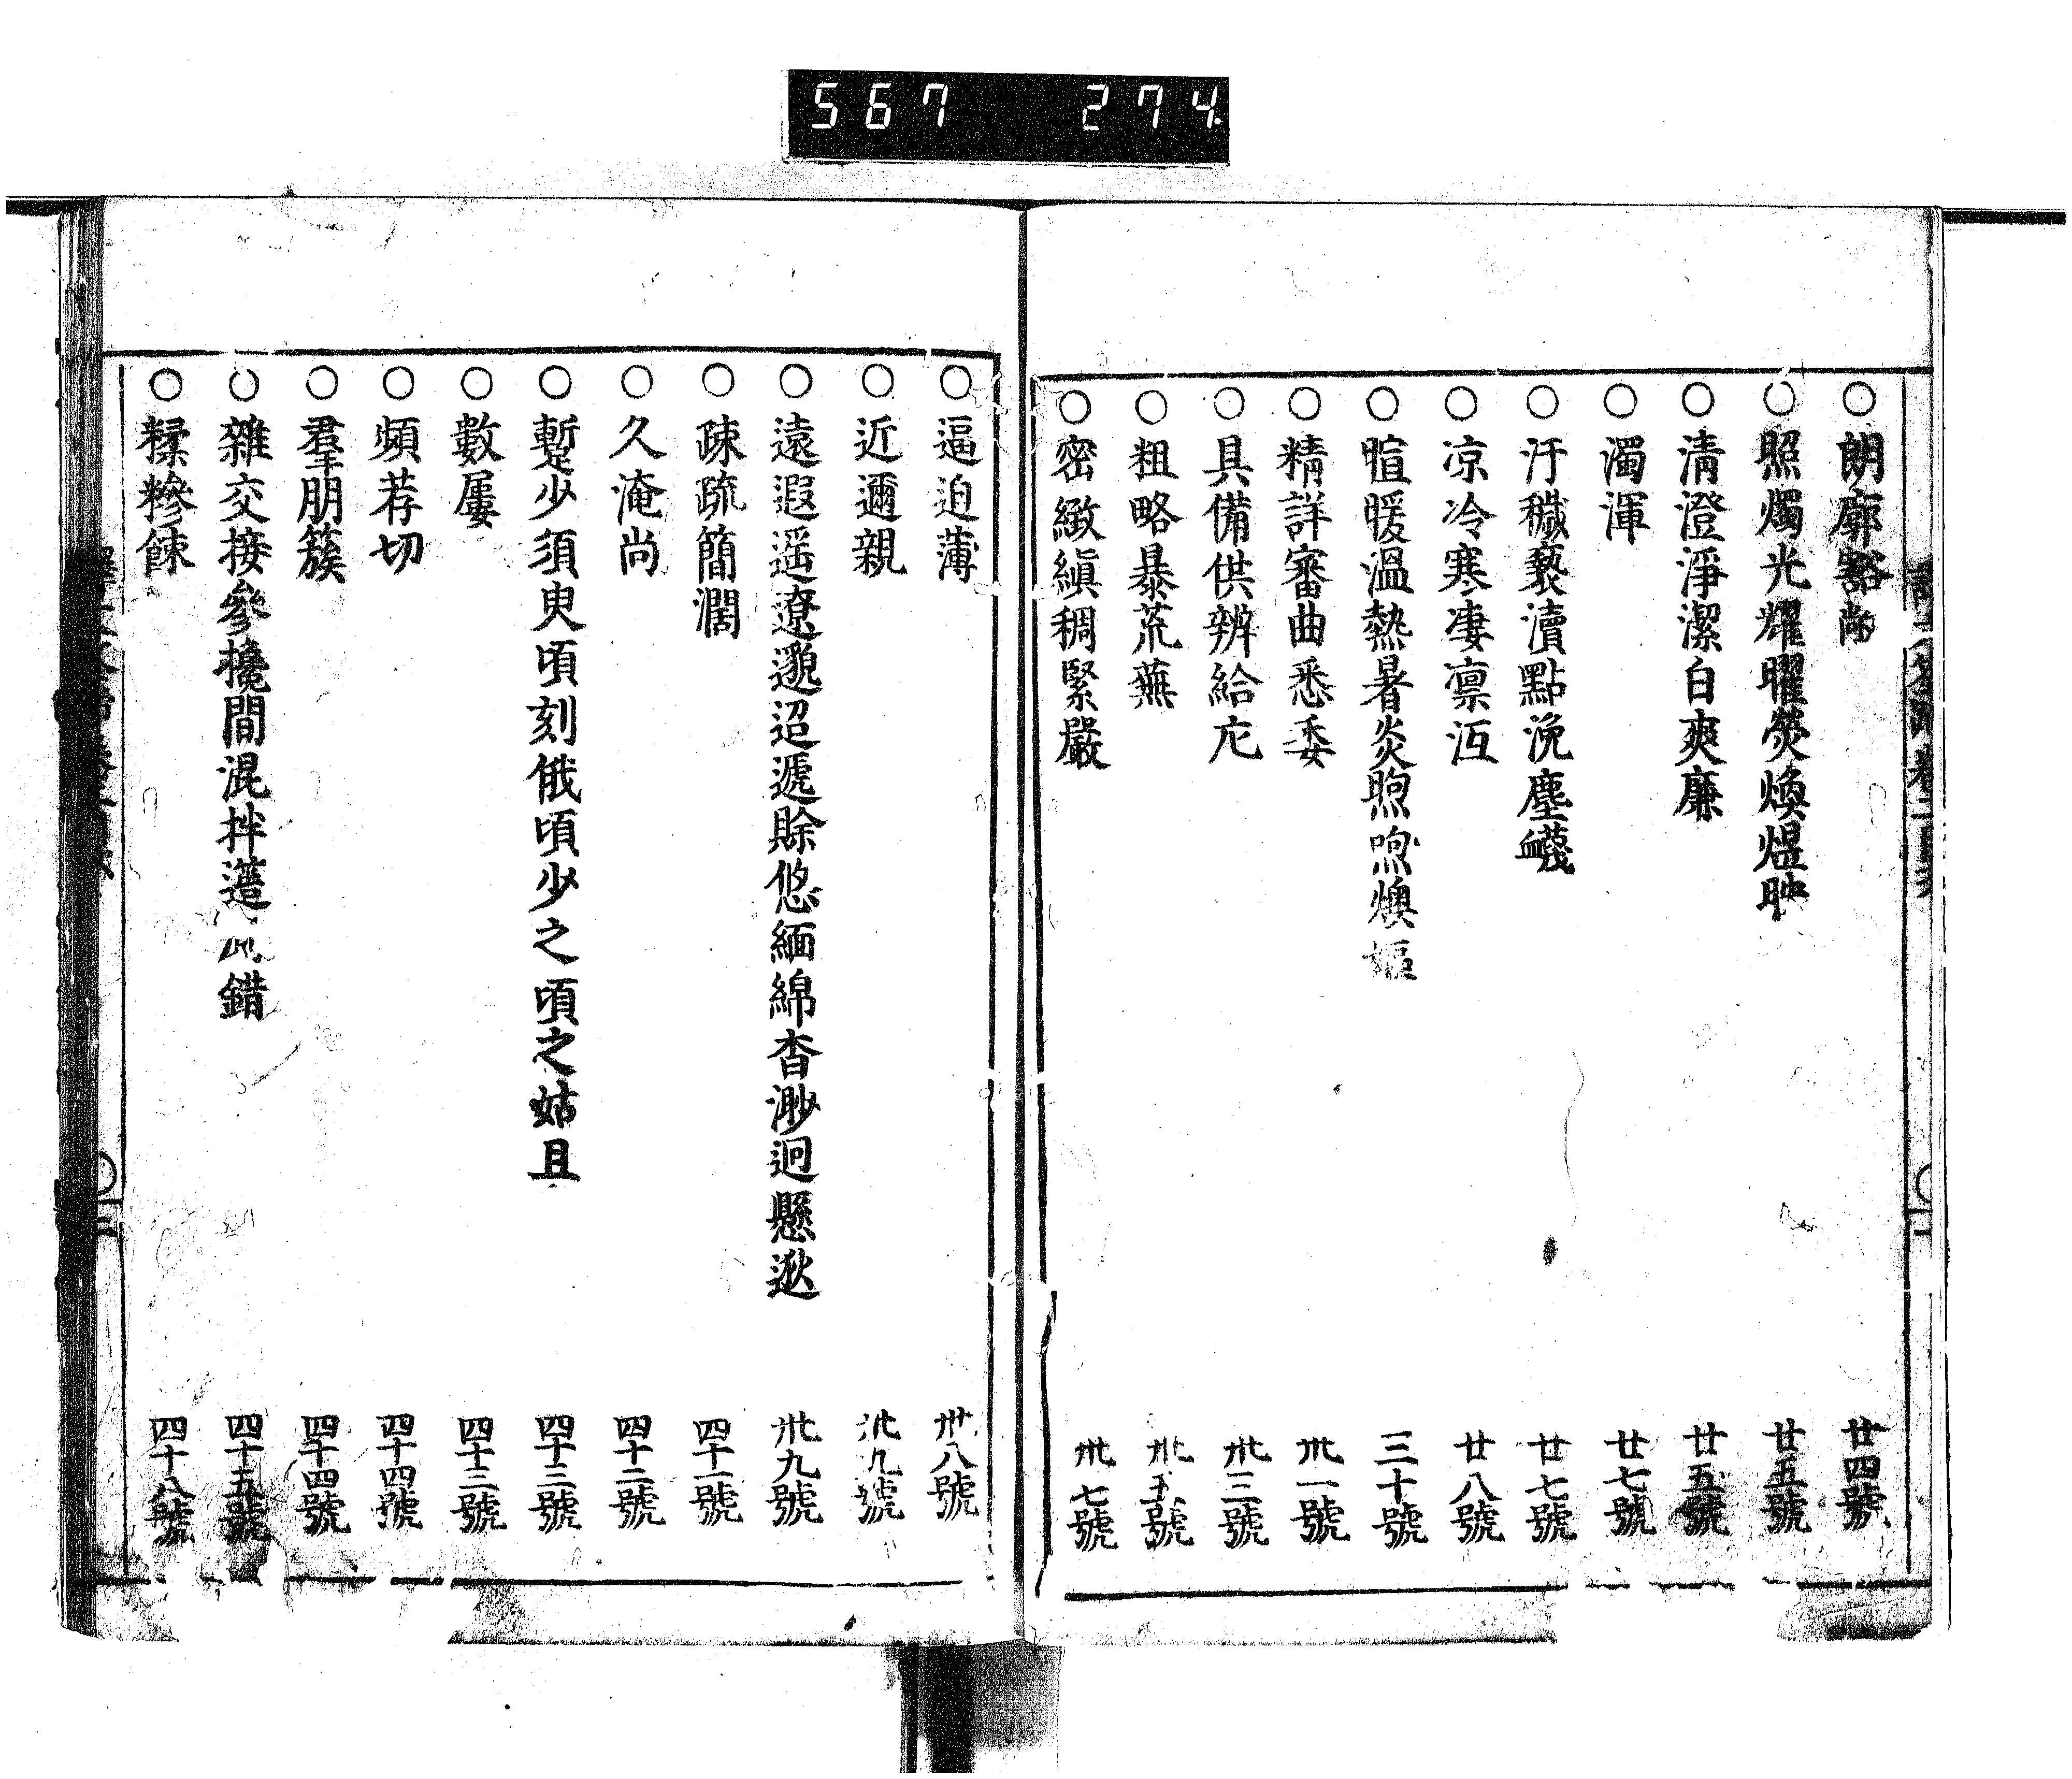 567 274.
○朗廓豁敞 廿四號
○照燭光耀曜熒煥煜映 廿五號
○清澄淨潔白爽廉 廿五號
○濁渾 廿七號
○汙穢褻瀆點浼塵衊 廿七號
○凉冷寒凄凛沍 廿八號
○暄暖溫熱暑炎煦喣燠嫗 三十號
○精詳審曲悉委 卅一號
○具備供辨給充 卅三號
○粗略暴荒蕪 卅五號
○密緻縝稠緊嚴 卅七號
○逼迫薄 卅八號
○近邇親 卅九號
○遠遐遥遼邈迢遞賖悠緬綿杳渺迥懸逖 卅九號
○疎疏簡濶 四十一號
○久淹尚 四十二號
○蹔少須臾頃刻俄頃少之頃之姑且 四十二號
○數屢 四十三號
○頻荐切 四十四號
○羣朋簇 四十四號
○雜交接參攙間混拌簉 錯 四十五號
○糅糝餗 四十八號